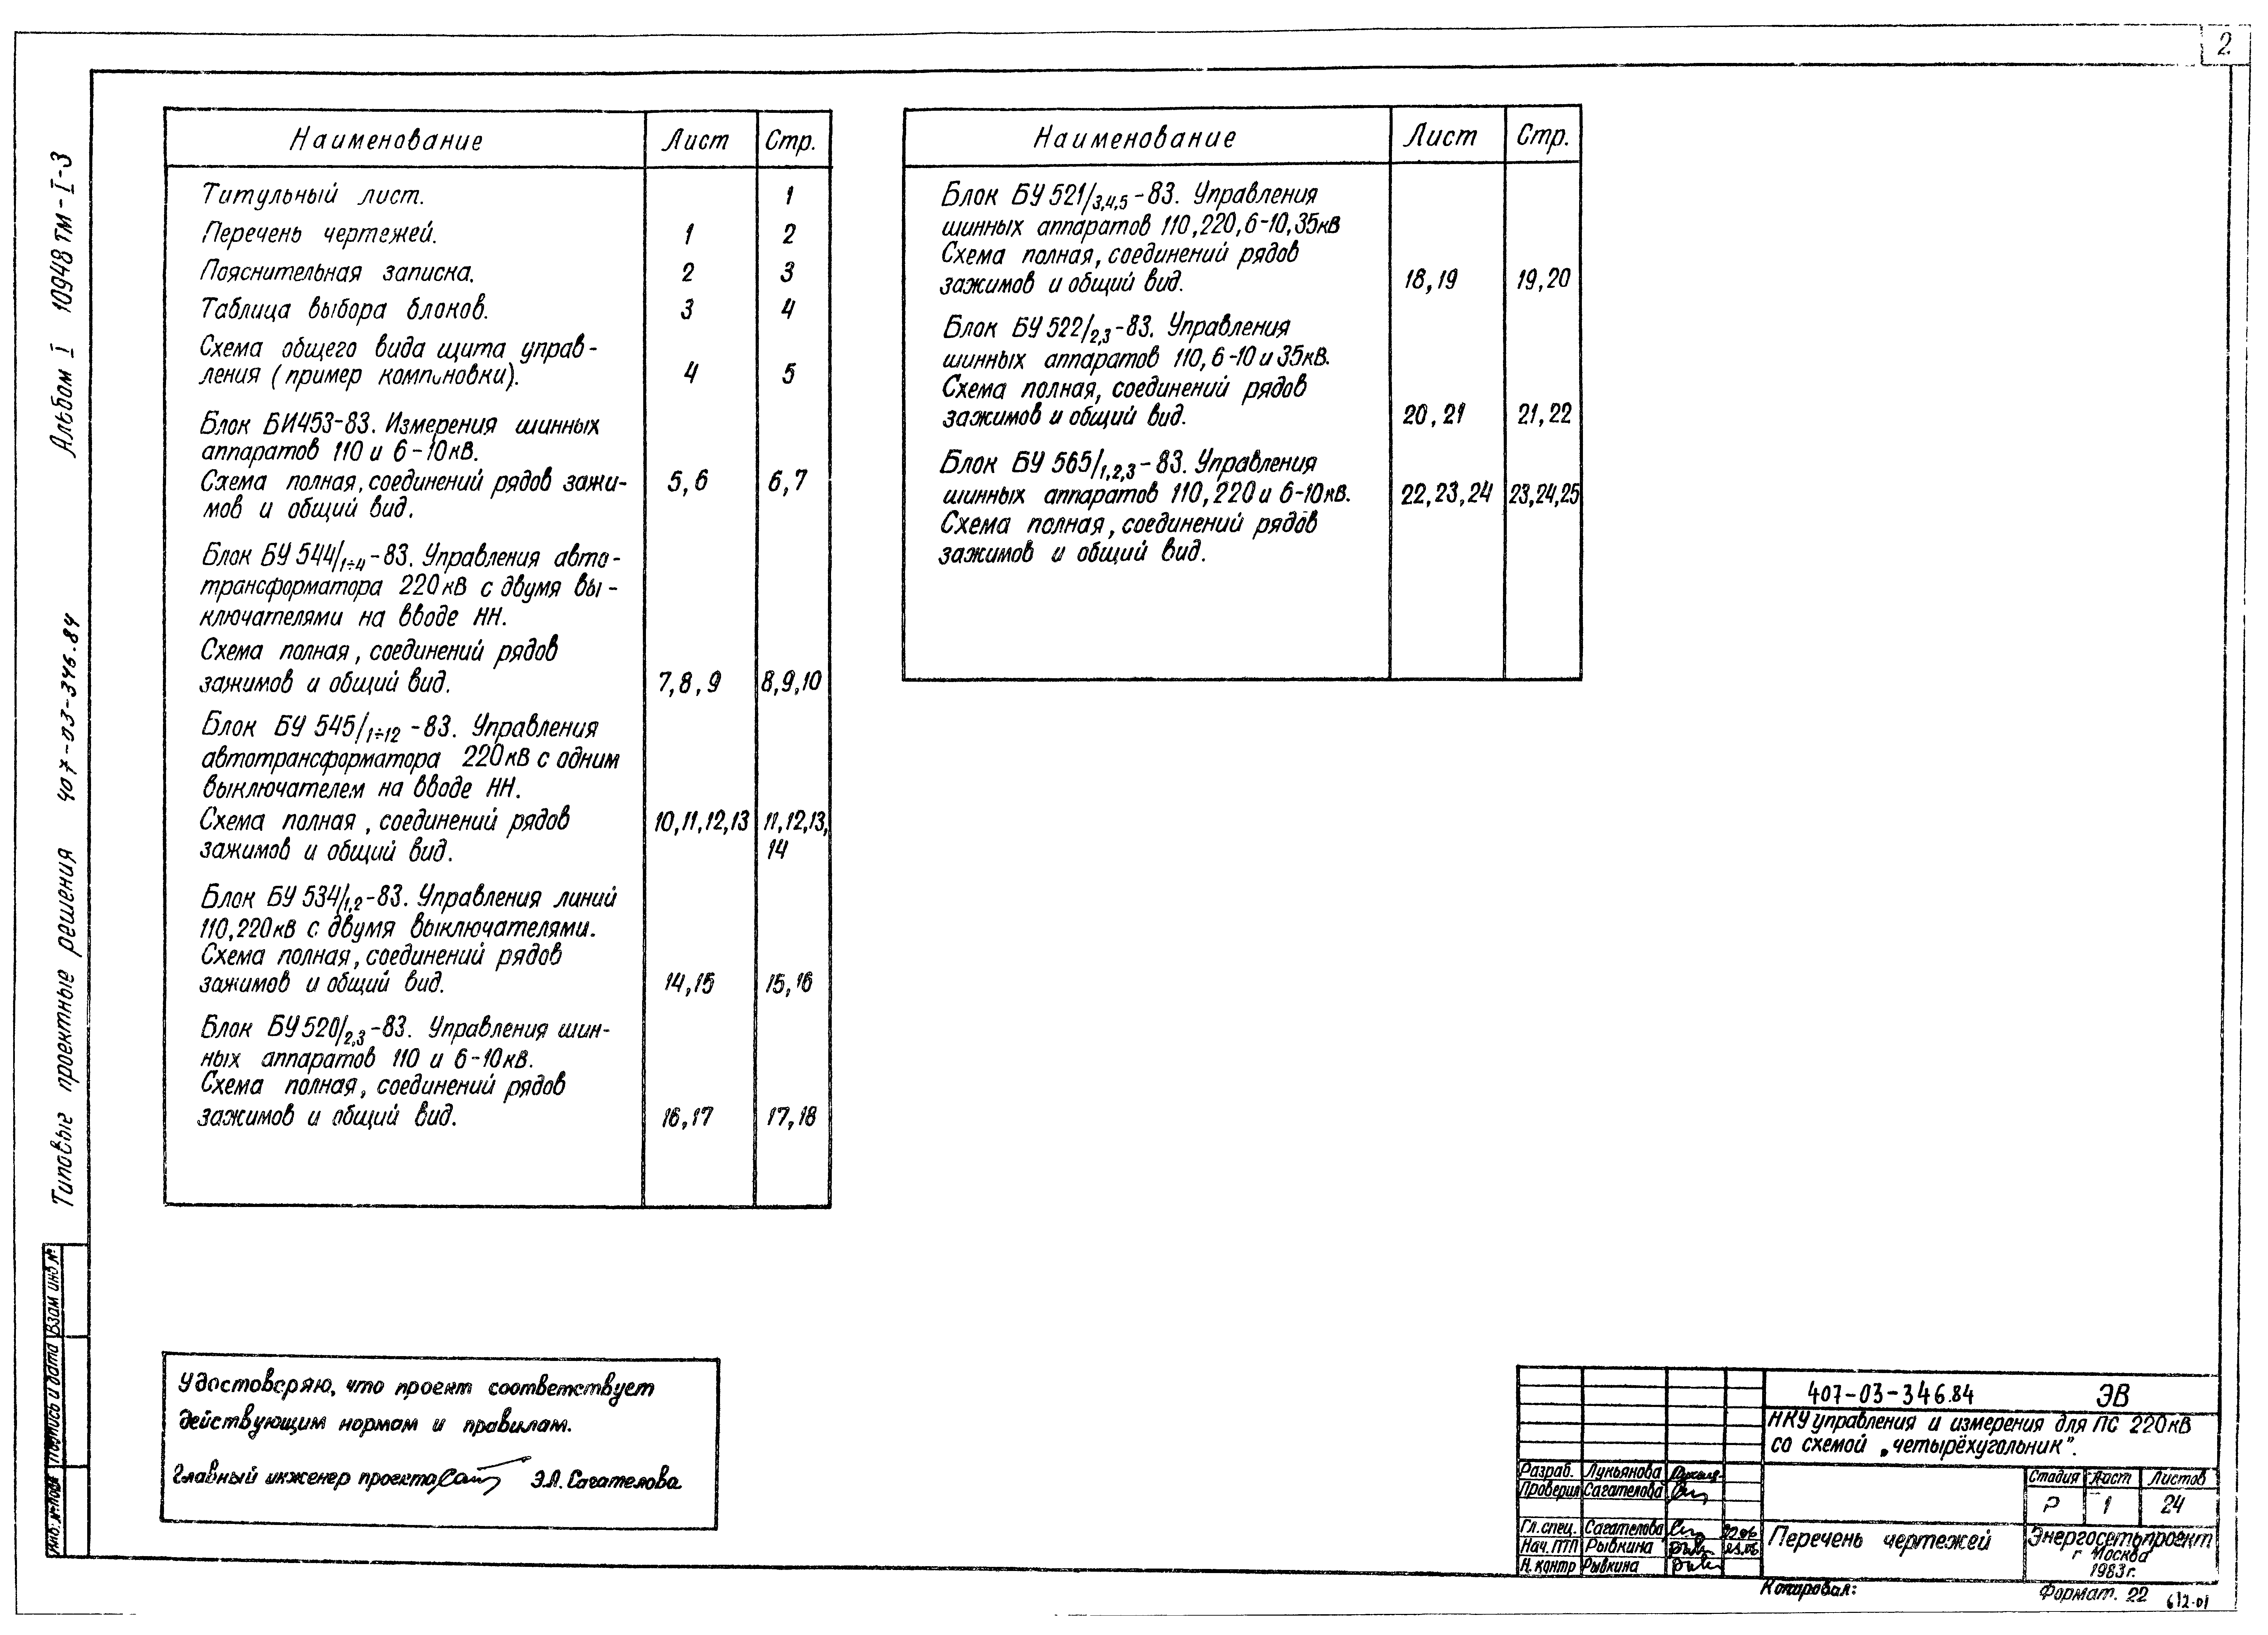 2
Альбом I 10948 тм-I-3
Типовые проектные решения 407-03-346.84
Наименование Лист Стр.
Титульный лист. 1
Перечень чертежей. 1 2
Пояснительная записка. 2 3
Таблица выбора блоков. 3 4
Схема общего вида щита управ-
ления (пример компоновки). 4 5
Блок БИ453-83. Измерения шинных
аппаратов 110 и 6-10кВ.
Схема полная, соединений рядов зажи- 5,6 6,7
мов и общий вид.
Блок БУ 544/1÷4-83. Управления авто-
трансформатора 220кВ с двумя вы-
ключателями на вводе НН.
Схема полная, соединений рядов
зажимов и общий вид. 7,8,9 8,9,10
Блок БУ 545/1÷12-83. Управления
автотрансформатора 220кВ с одним
выключателем на вводе НН.
Схема полная, соединений рядов 10,11,12,13 11,12,13,
зажимов и общий вид. 14
Блок БУ 534/1,2-83. Управления линий
110,220кВ с двумя выключателями.
Схема полная, соединений рядов
зажимов и общий вид. 14,15 15,16
Блок БУ520/2,3-83. Управления шин-
ных аппаратов 110 и 6-10кВ.
Схема полная, соединений рядов
зажимов и общий вид. 16,17 17,18
Наименование Лист Стр.
Блок БУ 521/3,4,5-83. Управления
шинных аппаратов 110,220,6-10,35кВ
Схема полная, соединений рядов
зажимов и общий вид. 18,19 19,20
Блок БУ 522/2,3-83. Управления
шинных аппаратов 110,6-10 и 35кВ.
Схема полная, соединений рядов
зажимов и общий вид. 20,21 21,22
Блок БУ 565/1,2,3-83. Управления
шинных аппаратов 110,220 и 6-10кВ. 22,23,24 23,24,25
Схема полная, соединений рядов
зажимов и общий вид.
Удостоверяю, что проект соответствует
действующим нормам и правилам.
Главный инженер проекта Э.А. Сагателова
Инв. № подл Подпись и дата Взам инв №
407-03-346.84 ЭВ
НКУ управления и измерения для ПС 220кВ
со схемой „четырёхугольник".
Разраб. Лукьянова
Проверил Сагателова
Гл. спец. Сагателова
Нач. ПТП Рывкина
Н. контр Рывкина
Стадия Лист Листов
Р 1 24
Перечень чертежей
Энергосетьпроект
г Москва
1983г.
Копировал: Формат. 22 612-01